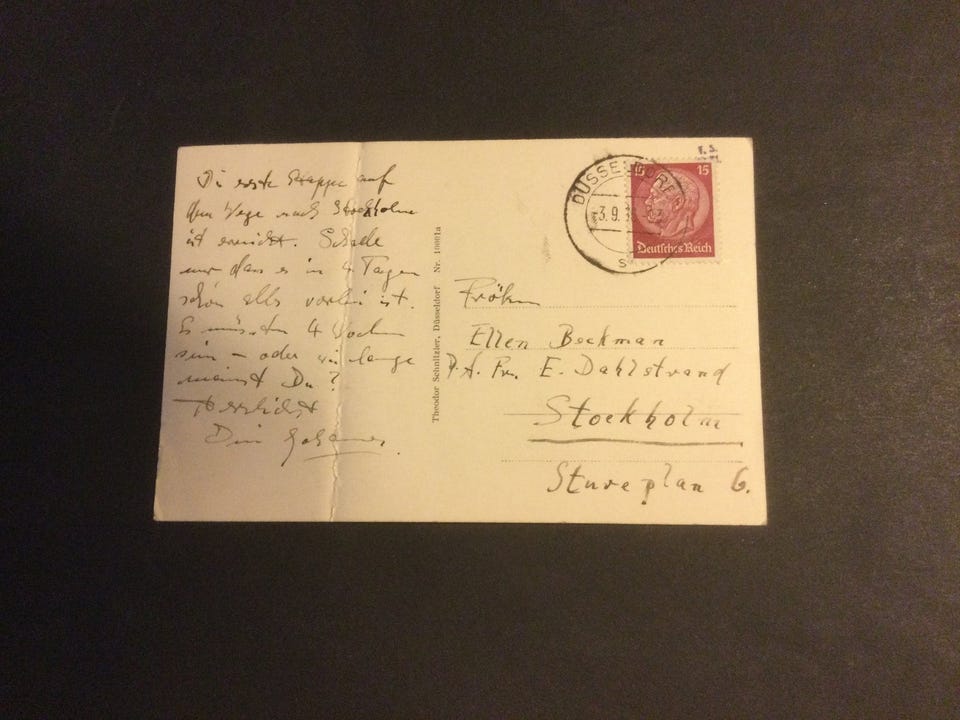 Die erste Etappe auf
dem Wege nach Stockholm
ist erreicht. Schade
nur dass es in 4 Tagen
schon alles vorbei ist.
Es müssten 4 Wochen
sein – oder wie lange
meinst Du?
Herzlichst
Dein
Theodor Schnitzler, Düsseldorf Nr. 10001a
DÜSSELDORF
3.9.3
s
15
Deutsches Reich
Fröken
Ellen Beckman
P.A. Fr. E. Dahlstrand
Stockholm
Stureplan 6.